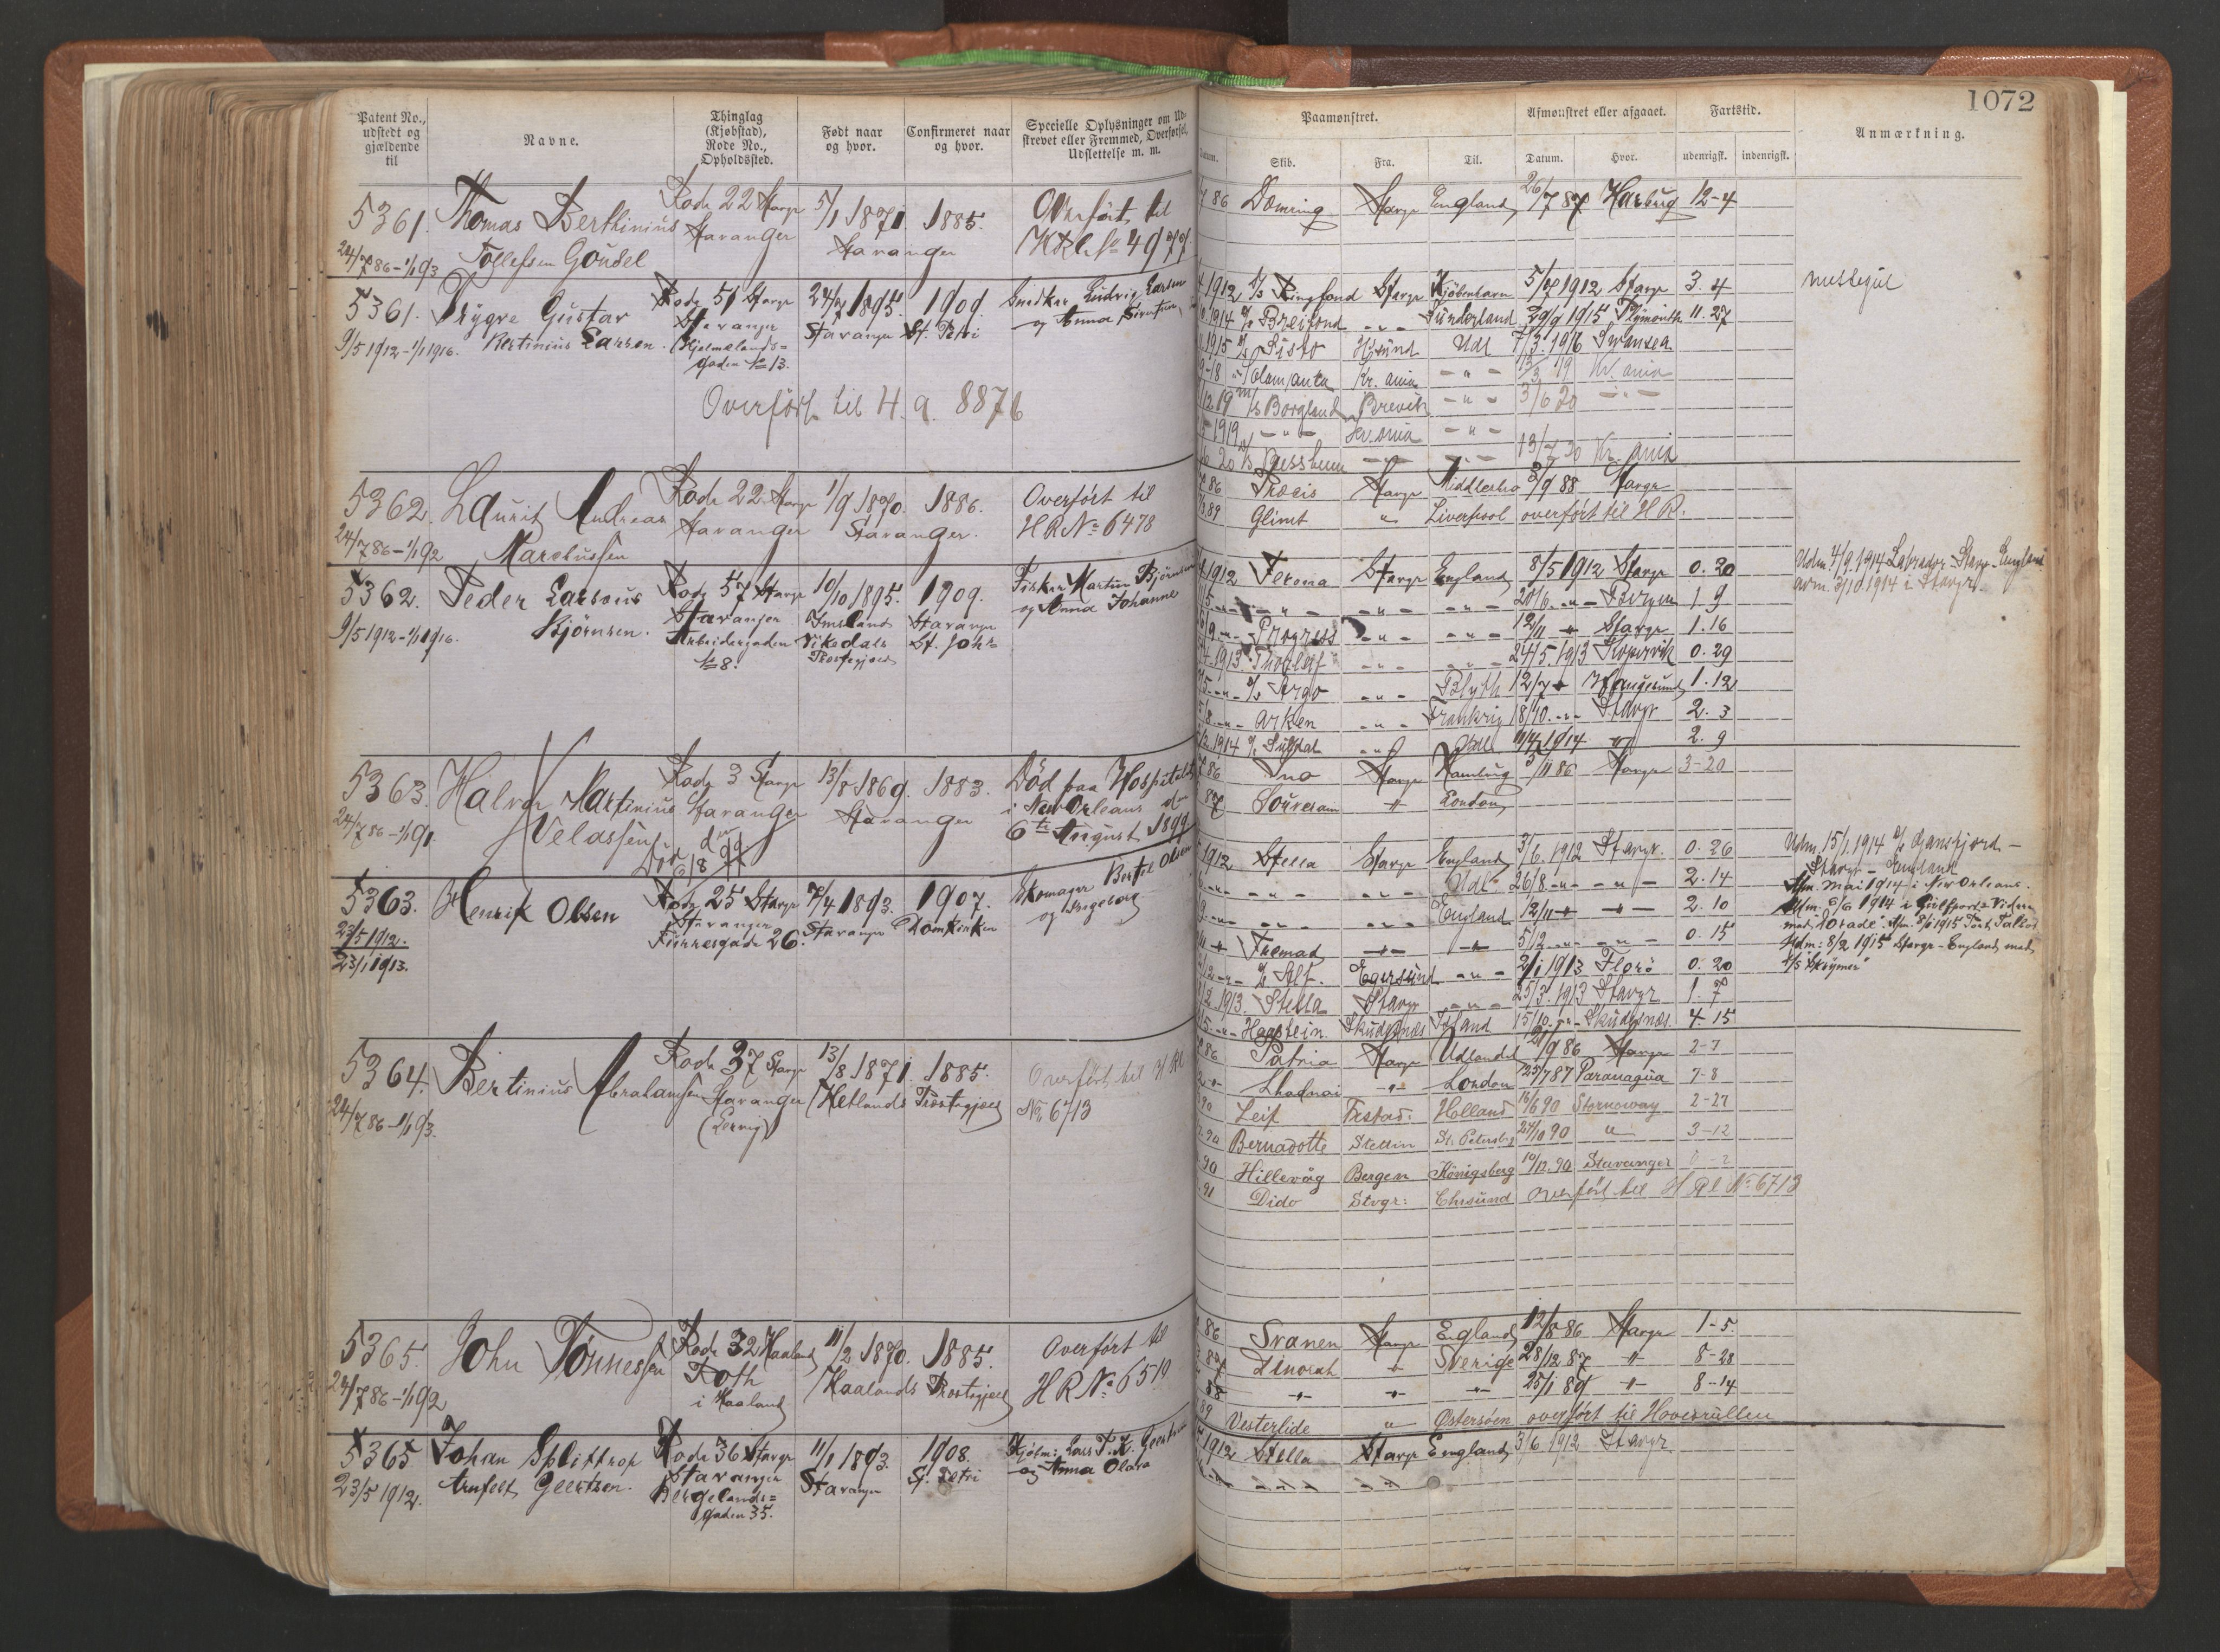 1072
Patent No.,
udstedt og
gjældende
til
Navne.
Thinglag
(Kjøbstad),
Rode No.,
Opholdssted.
Født naar
og hvor.
Confirmeret naar
og hvor.
Specielle Oplysninger om Ud-
strevet eller Fremmed, Overførsel,
Udslettelse m. m.
Paamønstret.
Afmønstret eller afgaaet.
Fartstid.
Anmærkning.
Datum.
Skib.
Fra.
Til.
Datum.
Hvor.
udenrigsk.
indenrigsk.
5361. Thomas Berthinius Rode 22 Stavgr 5/1 1871. 1885. Overført til
Tollefsen Goudel Stavanger Stavanger No 4977
24/7 86 – 1/1 93
86 Dæmring Stavgr England 26/7 87 Harburg 12-4
5361. Trygve Gustav Rode 51 Stavgr 24/7 1895. 1909. Snedker Ludvig Larsen
Bertinius Larsen. Stavanger Stavanger St. Petri og Anna
9/5 1912 – 1/1 1916. Hjelmelands=
gaden No 13.
Overført til H. a. 8876
1912 Ringfond Stavgr Kjøbenhavn 5/7 1912 Stavgr 3. 4
1914 Breifond " Sunderland 29/9 1915 Plymouth 11. 27
1915 Sisto Udl 7/3. 1916 Swansea
Kr. ania " 19 Kr. ania
12. 19 Borgland Brevik " 3/6 20 "
1919 " Kr. ania "
20 13/7 20 Kr. ania
5362. Laurit Andreas Rode 22 Stavgr 1/9 1870. 1886. Overført til
Marcussen Stavanger Stavanger. H R No 6478
24/7 86 – 1/1 92
86 Præcis Stavgr Middlesbro 2/9 88 Stavgr
89 Glimt " Liverpool overført til H R.
5362. Peder Larsous Rode 57 Stavgr 10/10 1895. 1909. Fisker Martin Bjørnsen
Bjørnsen. Stavanger Imsland Stavanger og Anna Johanne
9/5 1912 – 1/1 1916. Arbeidergaden Vikedals St. Johs
No 8. Præstegjæld
1912 Verona Stavgr England 8/5 1912 Stavgr 0. 20
" " " 20/6. " Bergen 1. 9
Progress " " 12/11 " Stavgr 1. 16
1913 Thorleif " " 24/5. 1913 Kopervik 0. 29
Argo " Blyth 12/7 " Haugesund 1. 12
Arken " Frankrig 18/10. " Stavgr 2. 3
1914 " Udl 1914 " 2. 9
Udm. 4/9. 1914 Labrador Stavgr – England
avm. 3/10. 1914 i Stavgr
5363. Halvor Martinius Rode 3 Stavgr 13/8 1869. 1883. Død paa Hospitalet
Velassen Stavanger Stavanger i New Orleans d.
24/7 86 – 1/1 91. 6te August 1899
Død d. 6/8 99
86 Ino Stavgr Hamburg 3/11 86 Stavgr 3-20
87 " London
5363. Henrik Olsen Rode 25 Stavgr 7/4 1893. 1907. Skomager Bertel Olsen
Stavanger Stavanger Domkirken og Ingeborg
23/5 1912. gade 26.
23/1 1913.
1912 Stella Stavgr England 3/6. 1912 Stavgr. 0. 26
" " " Udl 26/8 " " 2. 14
" " England 12/11 " 2. 10
Fremad " " 5/12 " " 0. 15
Alf. Egersund " 2/1 1913 Florø 0. 20
1913 Stella Stavgr " 25/3. 1913 Stavgr 1. 7
Haastein Skudesnæs Island 15/10. " Skudesnæs. 4. 15
Udm. 15/1. 1914
Stavgr – England
Afm. Mai 1914 i New Orleans.
6/6 1914 i Gulfport
Udm: 8/2 1915 Stavgr – England med
S/S "Skrymer"
5364. Bertinius Abrahamsen Rode 37 Stavgr 13/8 1871. 1885. Overført til H Rl
Stavanger Hetlands Præstegjæld No 6713
24/7 86 – 1/1 93.
86 Patria Stavgr Udlandet 86 Stavgr 2-7
" London 25/7 87 Paranagua 7-8
90 Leif Holland 16/6 90 Stornoway 2-27
90 Bernadotte Stettin St. Petersbg 24/10 90 " 3-12
90 Hillevåg Bergen Königsberg 10/12. 90 Stavanger
91 Dido Stvgr: Chrsund overført til H Rl No 6713
5365. John Tönnessen Rode 32 Haaland 11/2 1870. 1885. Overført til
Roth Haalands Præstegjæld H R No 6519
24/7 86 – 1/1 92 i Haaland
86 Svanen Stavgr England 12/8 86 Stavgr 1-5.
87 Dinorah " Sverige 28/12 87 " 8-28
88 " " " 25/1 89 " 8-14
89 Vesterlide " Østersøen overført til Hovedrullen
5365 Johan Splittorp Rode 36 Stavgr 11/1 1893. 1908. Kjøbm: Lars Geertsen
Geertsen. Stavanger Stavanger St. Petri og Anna Olava
23/5 1912. Bergelands=
gaden 35.
1912 Stella Stavgr England 3/6 1912 Stavgr